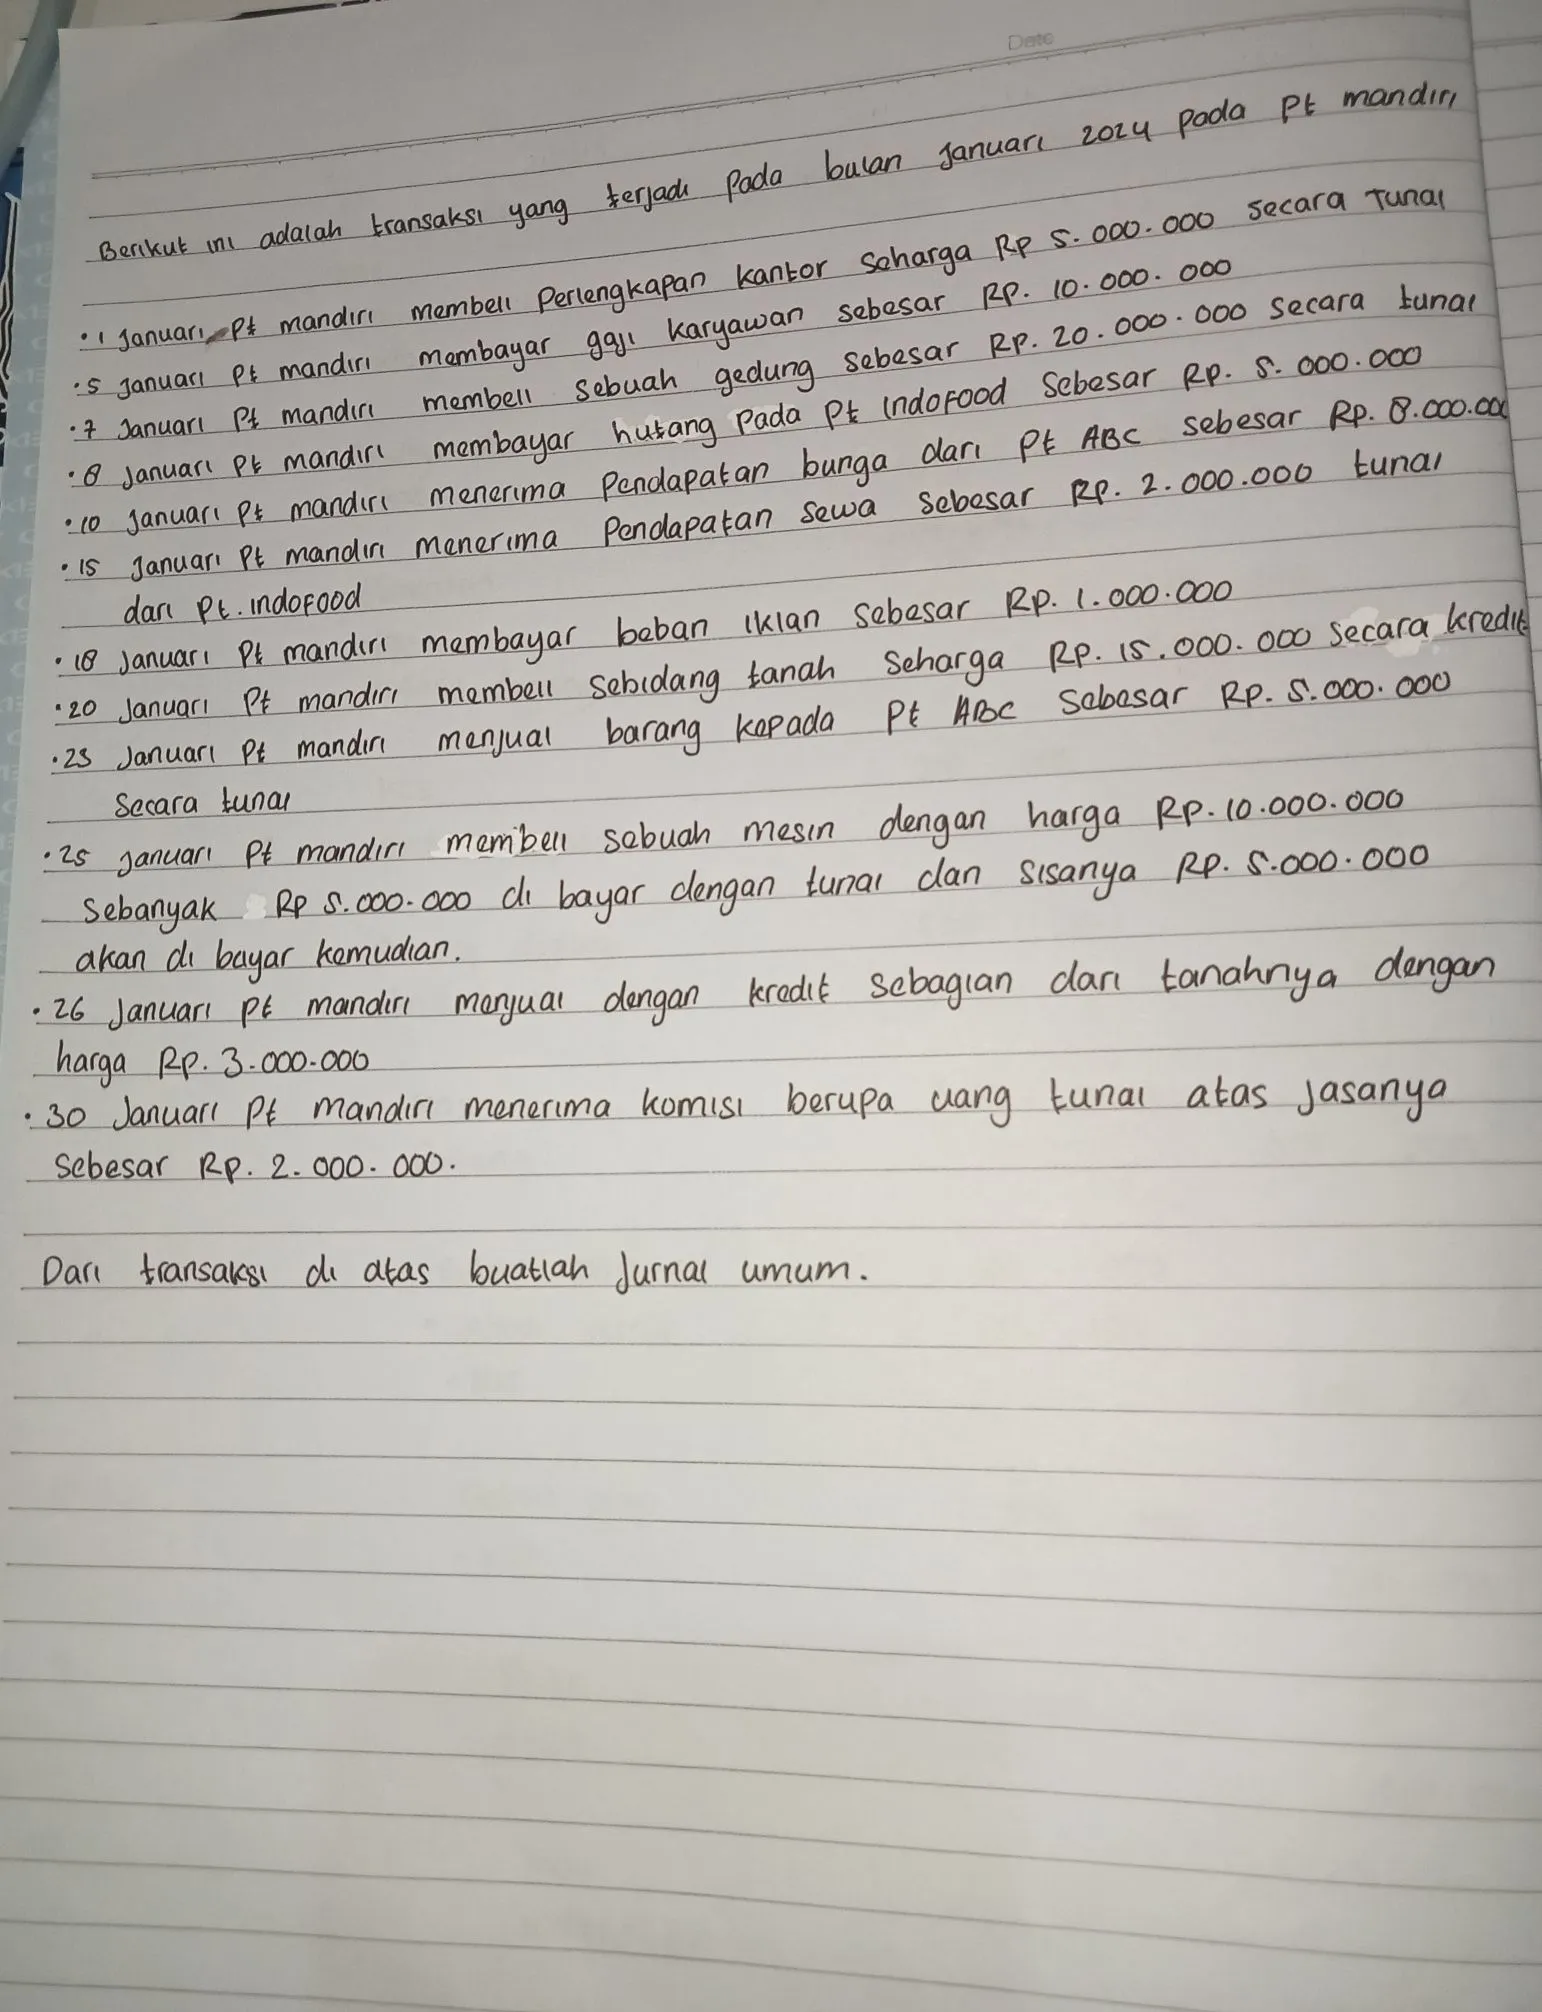 Date
Berikut ini adalah transaksi yang terjadi pada bulan Januari 2024 pada Pt mandiri
• 1 Januari Pt mandiri membeli Perlengkapan kantor seharga Rp 5.000.000 secara Tunai
• 5 Januari Pt mandiri membayar gaji karyawan sebesar RP. 10.000.000
• 7 Januari Pt mandiri membeli sebuah gedung sebesar RP. 20.000.000 secara tunai
• 8 Januari Pt mandiri membayar hutang Pada Pt Indofood sebesar RP. 5.000.000
• 10 Januari Pt mandiri menerima Pendapatan bunga dari Pt ABC sebesar RP. 8.000.000
• 15 Januari Pt mandiri menerima Pendapatan sewa sebesar RP. 2.000.000 tunai
dari Pt. indofood
• 18 Januari Pt mandiri membayar beban iklan sebesar RP. 1.000.000
• 20 Januari Pt mandiri membeli sebidang tanah seharga RP. 15.000.000 secara kredit
• 23 Januari Pt mandiri menjual barang kepada Pt ABC sebesar RP. 5.000.000
Secara tunai
• 25 Januari Pt mandiri membeli sebuah mesin dengan harga RP. 10.000.000
Sebanyak RP 5.000.000 di bayar dengan tunai dan sisanya RP. 5.000.000
akan di bayar kemudian.
• 26 Januari Pt mandiri menjual dengan kredit sebagian dari tanahnya dengan
harga RP. 3.000.000
• 30 Januari Pt mandiri menerima komisi berupa uang tunai atas jasanya
sebesar RP. 2.000.000.
Dari transaksi di atas buatlah Jurnal umum.